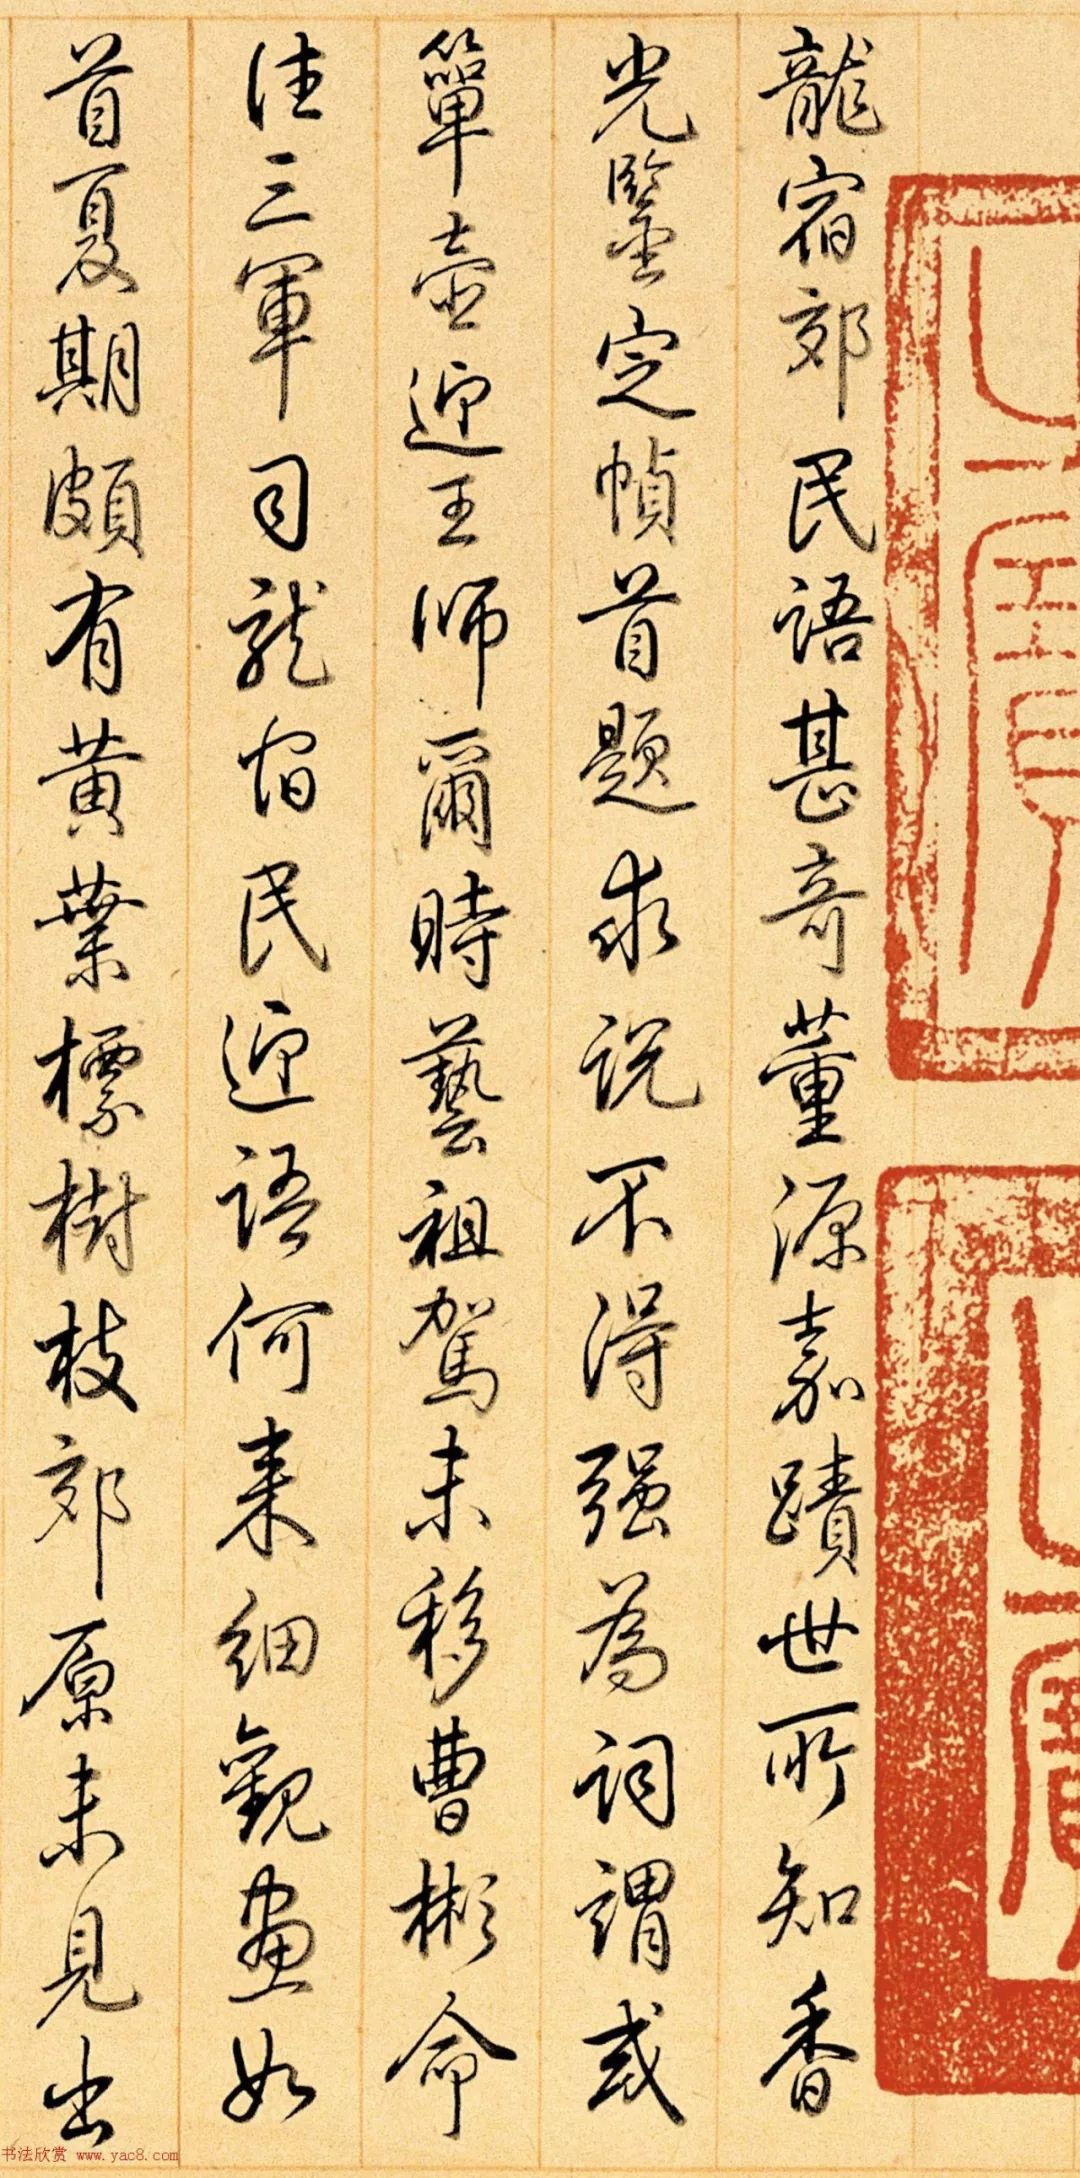 龍宿郊民語甚奇董源嘉蹟世所知香
光鑒定幀首題求說不得强為詞謂或
簞壺迎王師爾時藝祖駕未移曹彬命
往三軍司龍宿民迎語何来細觀畫如
首夏期頗有黄葉標樹枝郊原未見出
书法欣赏 www.yac8.com